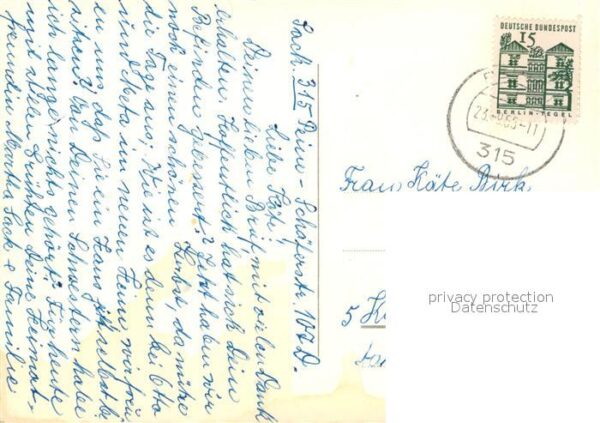 Sack. 315 Peine - Schäferstr. 107 D.
Liebe Käte,
Deinen lieben Brief mit vielen Dank
erhalten. Hoffentlich hat sich Dein
Befinden gebessert? Jetzt haben wir
noch einen schönen Herbst, da nütze
die Tage aus. Wie ist es denn bei Otto
und in neuen Heim
zu uns, daß Sie ein Haus jetzt selbst be-
sitzen? Von Deinen Schwestern habe
ich lange nichts gehört.
Deine Heimat-
freundin Martha Sack & Familie
DEUTSCHE BUNDESPOST
15
BERLIN-TEGEL
315
Frau Käte Birk
5
privacy protection
Datenschutz